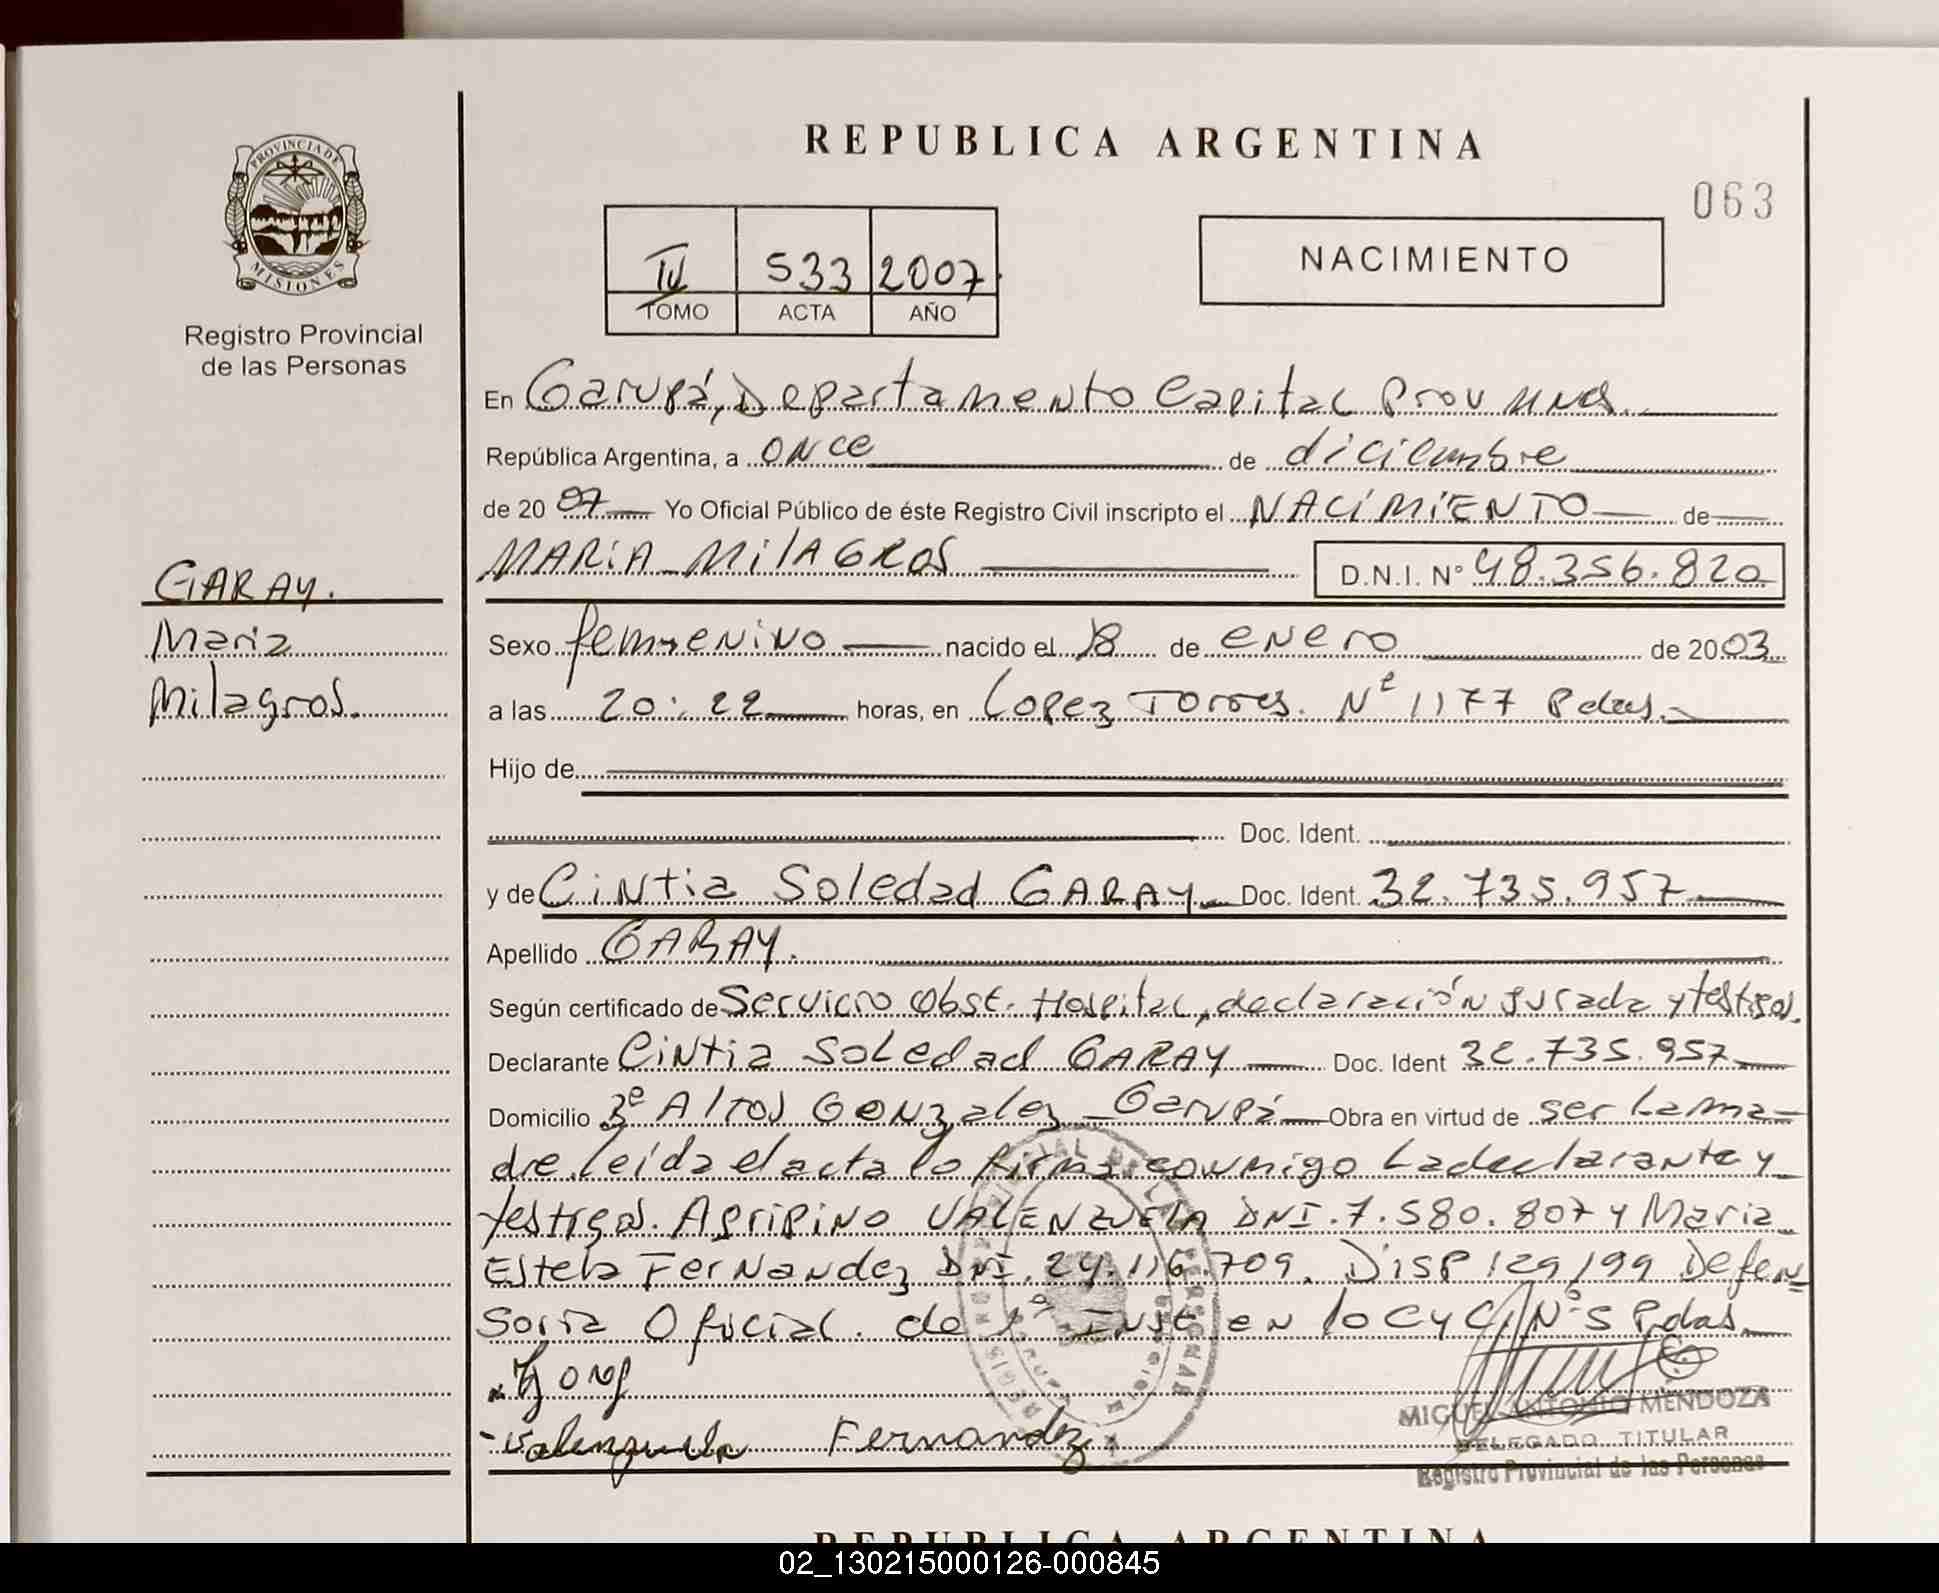 REPUBLICA ARGENTINA
063
PROVINCIA DE
MISIONES
Registro Provincial
de las Personas
IV 533 2007
TOMO ACTA AÑO
NACIMIENTO
En Garupá, Departamento Capital Prov Mnes.
República Argentina, a once de diciembre
de 2007 Yo Oficial Público de éste Registro Civil inscripto el NACIMIENTO de
MARIA MILAGROS D.N.I. Nº 48.356.820
GARAY.
Maria
Milagros.
Sexo femenino nacido el 18 de enero de 2003
a las 20:22 horas, en Lopez Torres. Nº 1177 Pdas.
Hijo de
Doc. Ident.
y de Cintia Soledad GARAY Doc. Ident. 32.735.957
Apellido GARAY.
Según certificado de Servicio Obst. Hospital, declaración jurada y testigos.
Declarante Cintia Soledad GARAY Doc. Ident 32.735.957
Domicilio Altos Gonzalez Garupá Obra en virtud de ser la ma-
dre. Leída el acta lo firma conmigo la declarante y
testigos. Agripino VALENZUELA DNI. 7.580.807 y Maria
Estela Fernandez DNI. 24.116.709. Disp 129/99 Defen-
soria Oficial. de 1º Inst en lo C y C Nº 5 Pdas.
Valenzuela Fernandez
MIGUEL ANTONIO MENDOZA
DELEGADO TITULAR
Registro Provincial de las Personas
REPUBLICA ARGENTINA
02_130215000126-000845